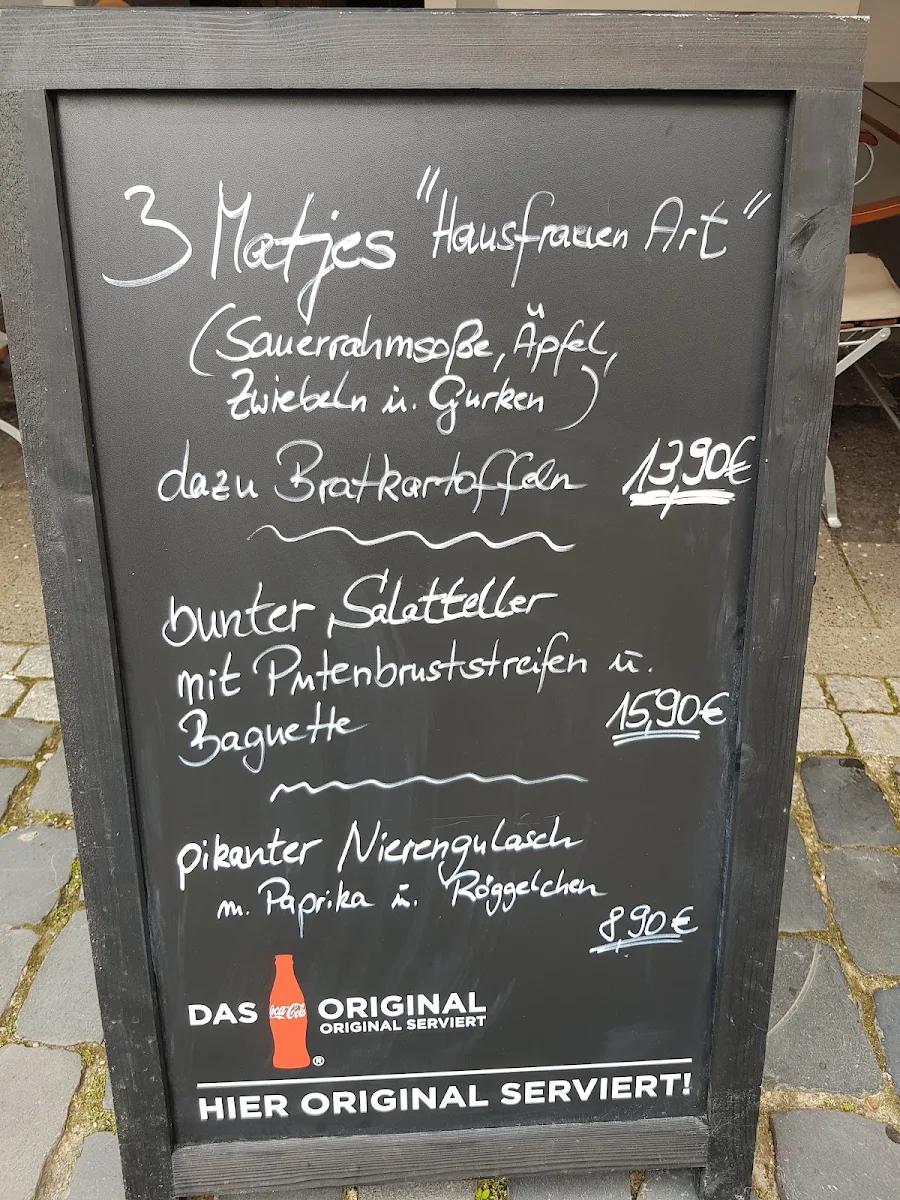 3 Matjes "Hausfrauen Art"
(Sauerrahmsoße, Äpfel,
Zwiebeln u. Gurken)
dazu Bratkartoffeln 13,90€
bunter Salatteller
mit Putenbruststreifen u.
Baguette 15,90€
pikanter Nierengulasch
m. Paprika u. Röggelchen
8,90€
DAS Coca-Cola ORIGINAL
ORIGINAL SERVIERT
®
HIER ORIGINAL SERVIERT!